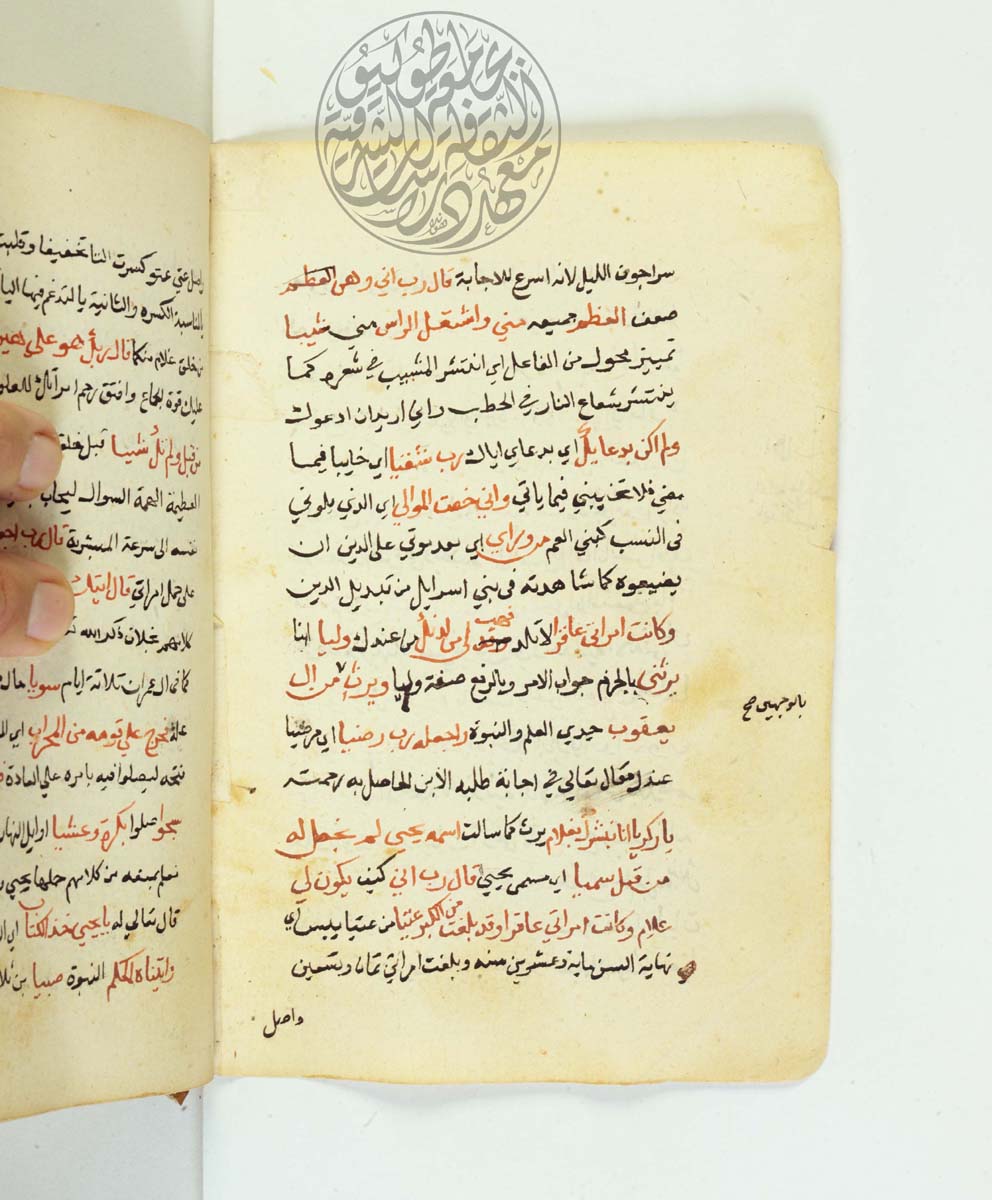 سرا جوف الليل لانه اسرع للاجابة قال رب اني وهن العظم
ضعف العظم جميعه مني واشتعل الراس مني شيبا
تمييز محول من الفاعل اي انتشر المشيب في شعره كما
ينتشر شعاع النار في الحطب واني اريد ان ادعوك
ولم اكن بدعايك اي بدعاي اياك رب شقيا اي خايبا فيما
مضي فلا تخيبني فيما ياتي واني خفت الموالي اي الذين يلوني
في النسب كبني العم من وراي اي بعد موتي على الدين ان
يضيعوه كما شاهدته في بني اسرايل من تبديل الدين
وكانت امراتي عاقرا لا تلد فهب لي من لدنك من عندك وليا ابنا
يرثني بالجزم جواب الامر وبالرفع صفة وليا ويرث من ال
بالوجهين صح
يعقوب جدي العلم والنبوة واجعله رب رضيا اي مرضيا
عندك فقال تعالي في اجابة طلبه الابن الحاصل به رحمته
يا زكريا انا نبشرك بغلام يرث كما سالت اسمه يحيى لم نجعل له
من قبل سميا اي مسمى بيحيى قال رب اني كيف يكون لي
غلام وكانت امراتي عاقرا وقد بلغت من الكبر عتيا من عتيا يبس اي
نهاية السن ماية وعشرين سنه وبلغت امراتي ثمان وتسعين
واصل
اصل عتي عتو وكسرت التا تخفيفا وقلبت
لمناسبة الكسره والثانية يا لتدغم فيها اليا
من خلق غلام منكما قال ربك هو علي هين
عليك قوة الجماع وافتق رحم امراتك للعلو
من قبل ولم تك شيا قبل خلقك
العظيمة الهمه السوال ليجاب
نفسه الى سرعة المبشر به قال رب اجعل
على حمل امراتي قال ايتك
كلامهم بخلاف ذكر الله
كما في ال عمران ثلاثة ايام سويا حال
علة فخرج على قومه من المحراب اي
فتحه ليصلوا فيه بامره علي العادة
سبحوا صلوا بكرة وعشيا اوايل النهار
فعلم بمنعه من كلامهم حملها بيحيى
قال تعالي له يا يحيى خذ الكتاب اي
واتيناه الحكم النبوة صبيا بن ثلا
معهد الثقافة والدراسات الشرقية
جامعة طوكيو